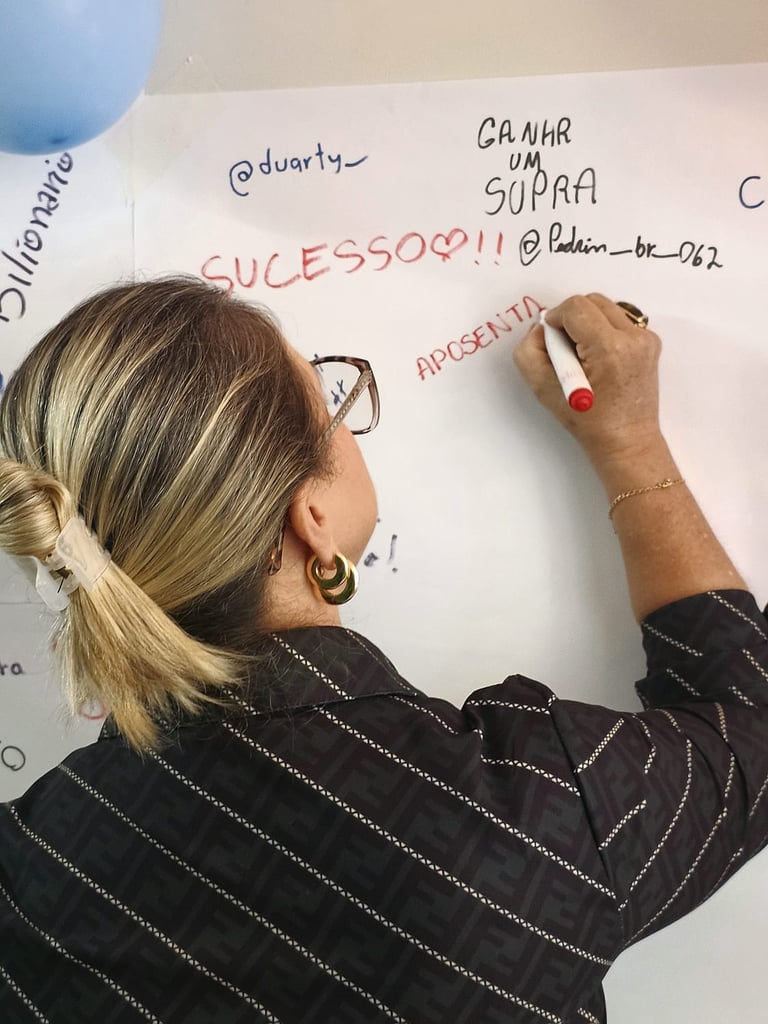 Bilionario
@duarty_
GANHR
UM
SUPRA
SUCESSO♡!!
@Pedrin_br_062
APOSENTA